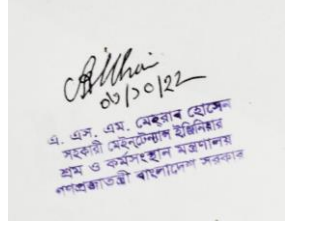 ০৬/১০/২২
এ. এস. এম. মেহরাব হোসেন
সহকারী মেইনটেন্যান্স ইঞ্জিনিয়ার
শ্রম ও কর্মসংস্থান মন্ত্রণালয়
গণপ্রজাতন্ত্রী বাংলাদেশ সরকার